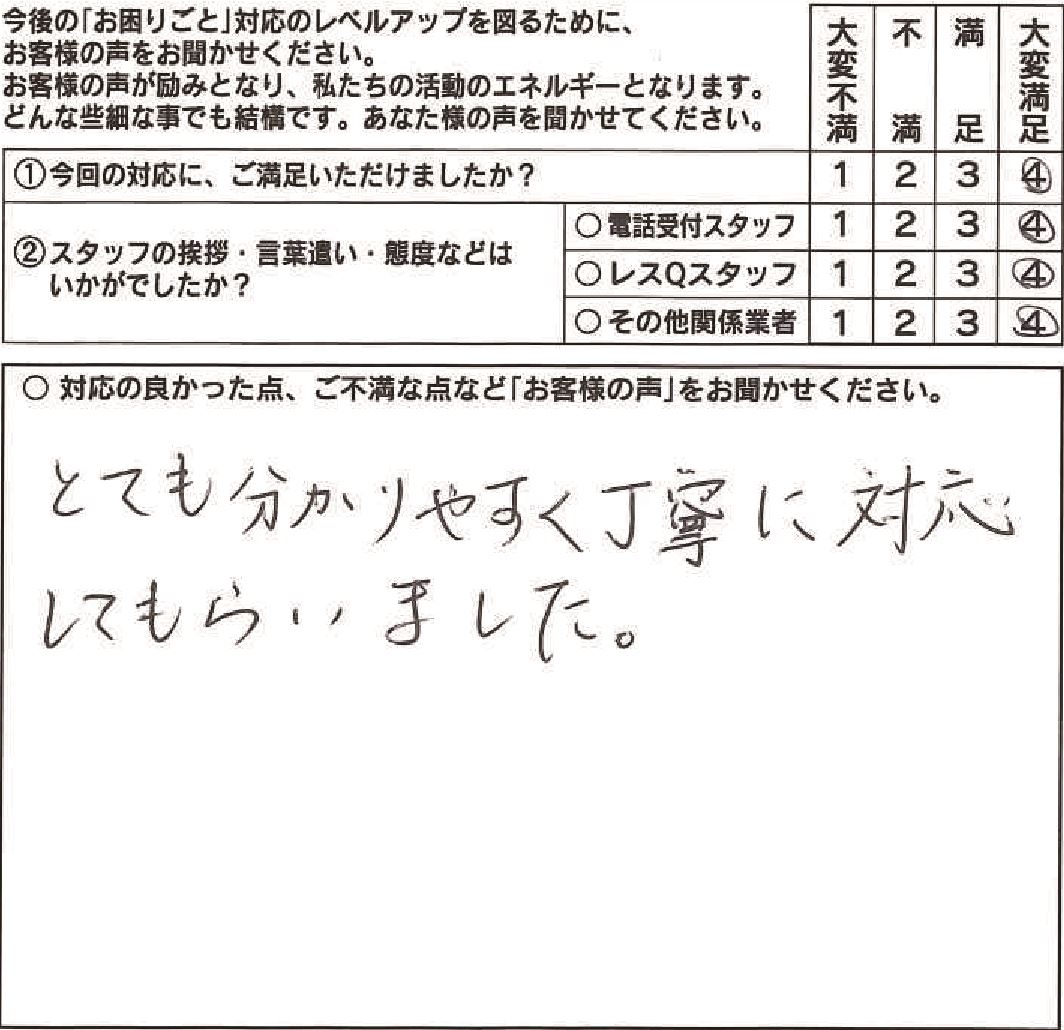 今後の「お困りごと」対応のレベルアップを図るために、
お客様の声をお聞かせください。
お客様の声が励みとなり、私たちの活動のエネルギーとなります。
どんな些細な事でも結構です。あなた様の声を聞かせてください。
大変不満 不満 満足 大変満足
①今回の対応に、ご満足いただけましたか? 1 2 3 4
②スタッフの挨拶・言葉遣い・態度などは
いかがでしたか?
○電話受付スタッフ 1 2 3 4
○レスQスタッフ 1 2 3 4
○その他関係業者 1 2 3 4
○ 対応の良かった点、ご不満な点など「お客様の声」をお聞かせください。
とても分かりやすく丁寧に対応
してもらいました。